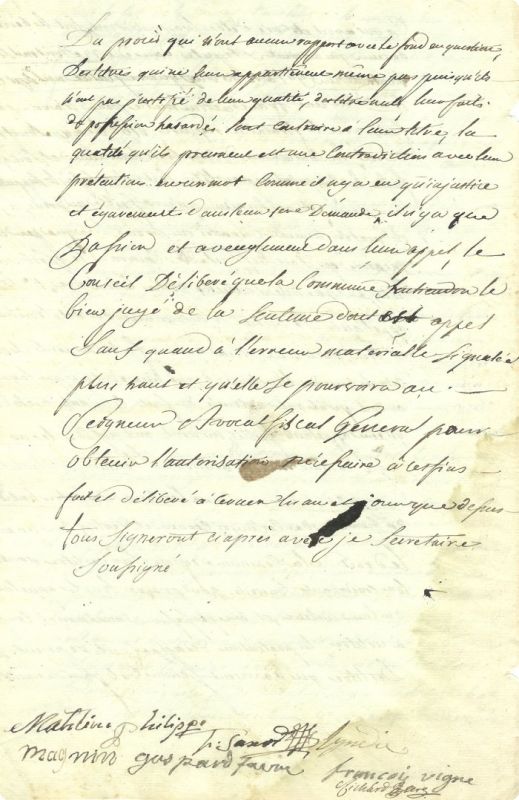 Du procès qui n'ont aucun rapport avec le fond en question,
Des titres qui ne leur appartiennent même pas puisqu'ils
n'ont pas justifié de leur qualité, des titres nuls leurs faits
de possession hasardés sont contraire à leur titre, la
qualité qu'ils prennent est une contradiction avec leur
prétention en un mot comme il n'y a eu qu'injustice
et égarement dans leur 1ere Demande, il n'y a que
Passion et aveuglement dans leur appel, le
Conseil Délibéré que la Commune soutiendra le
bien jugé de la Sentence dont est appel
Sauf quand à l'erreur materielle Signalée
plus haut et qu'elle se pourvoira au
Seigneur Avocat fiscal General pour
obtenir l'autorisation nécéssaire à ces fins
fait et délibéré à les an et jour que dessus
tous Signeront ci après avec je Secretaire
Soussigné
Philippe Syndic
magnin gaspard favre
françois vigne